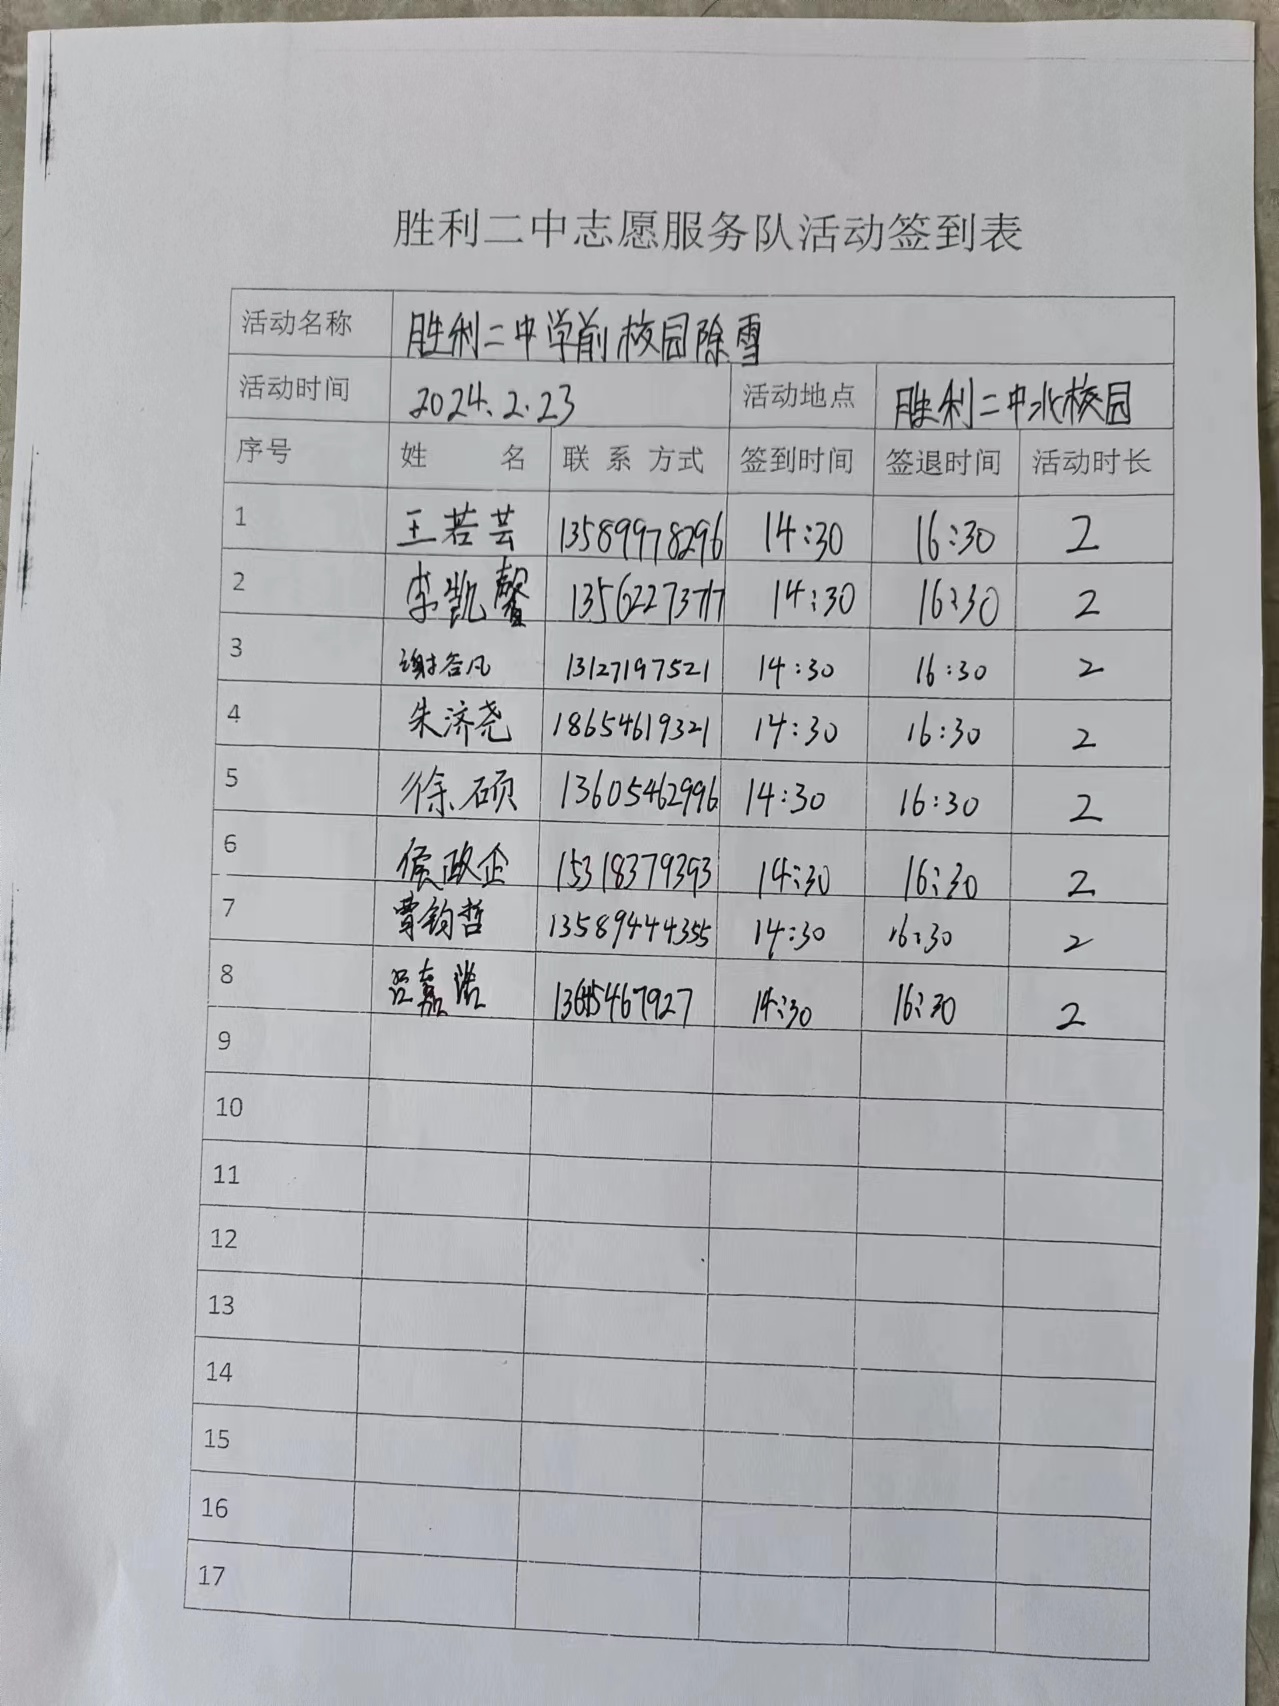 胜利二中志愿服务队活动签到表
活动名称 胜利二中学前校园除雪
活动时间 2024.2.23 活动地点 胜利二中北校园
序号 姓 名 联系方式 签到时间 签退时间 活动时长
1 王若芸 13589978296 14:30 16:30 2
2 李凯馨 13562273777 14:30 16:30 2
3 谢谷凡 13127197521 14:30 16:30 2
4 朱济尧 18654619321 14:30 16:30 2
5 徐硕 13605462996 14:30 16:30 2
6 侯政企 15318379393 14:30 16:30 2
7 曹钧哲 13589444355 14:30 16:30 2
8 吕嘉浩 14:30 16:30 2
9
10
11
12
13
14
15
16
17